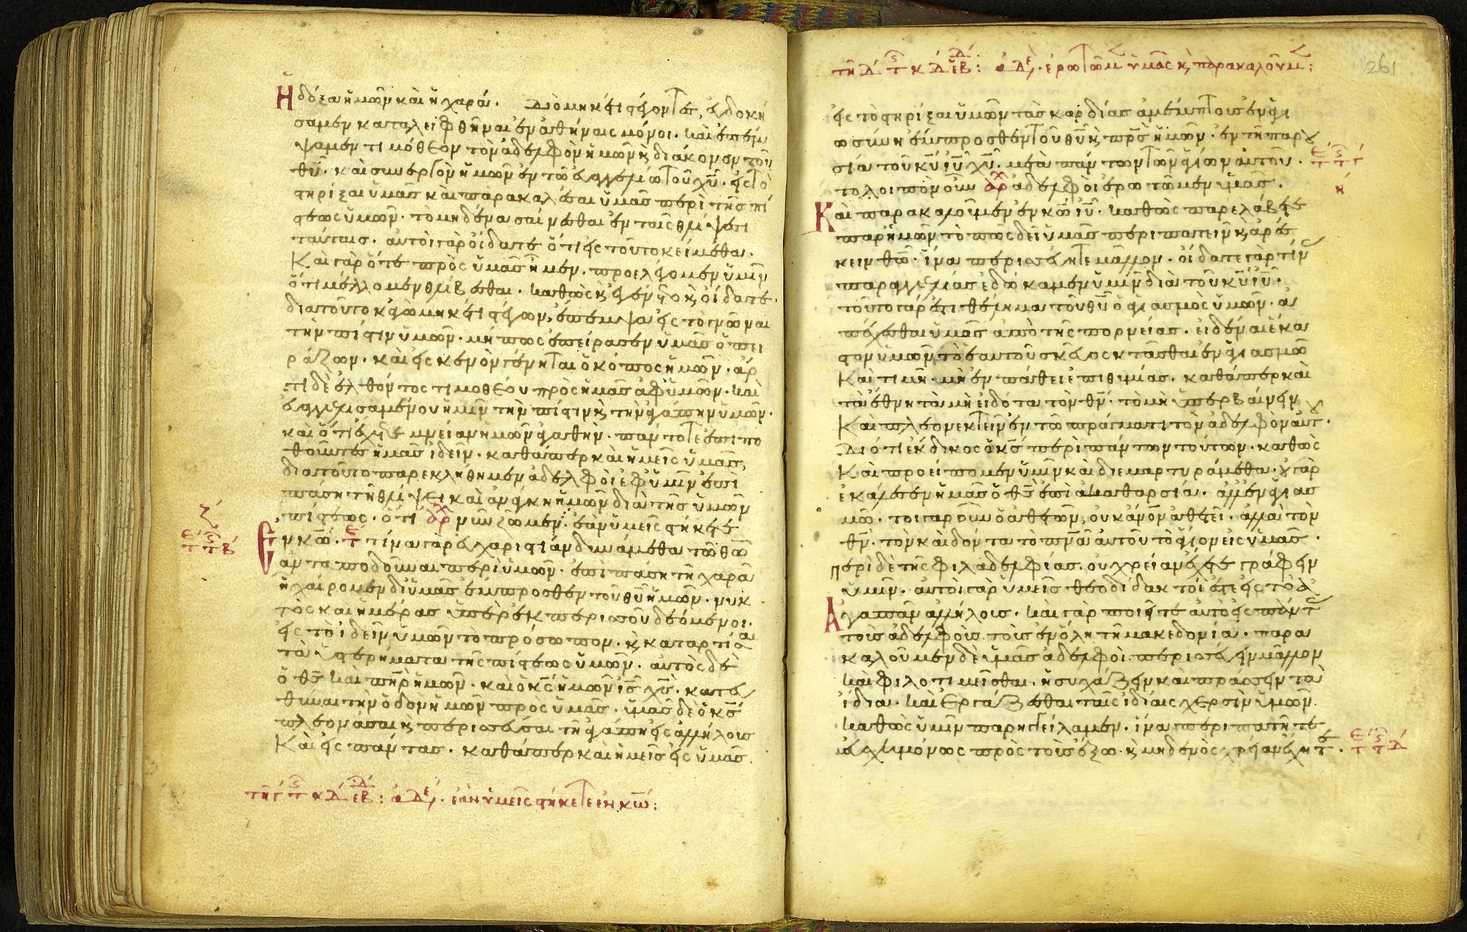 ἡ δόξα ἡμῶν καὶ ἡ χαρά. Διὸ μηκέτι στέγοντες, εὐδοκή
σαμεν καταλειφθῆναι ἐν ἀθήναις μόνοι. καὶ ἐπέμ
ψαμεν τιμόθεον τὸν ἀδελφὸν ἡμῶν κ διάκονον τοῦ
θῦ. καὶ συνεργὸν ἡμῶν ἐν τῶ εὐαγγελίω τοῦ χῦ. εἰς τὸ
στηρίξαι ὑμᾶς καὶ παρακαλέσαι ὑμᾶς περὶ τῆς πί
στεως ὑμῶν. τὸ μηδένα σαίνεσθαι ἐν ταῖς θλίψεσι
ταύταις. αὐτοὶ γὰρ οἴδατε ὅτι εἰς τοῦτο κείμεθα.
Καὶ γὰρ ὅτε πρὸς ὑμᾶς ἦμεν. προελέγομεν ὑμῖν
ὅτι μέλλομεν θλίβεσθαι. καθὼς κ ἐγένετο κ οἴδατε.
διατοῦτο κἀγὼ μηκέτι στέγων, ἔπεμψα εἰς τὸ γνῶναι
τὴν πίστιν ὑμῶν. μήπως ἐπείρασεν ὑμᾶς ὁ πει
ράζων. καὶ εἰς κενὸν γένηται ὁ κόπος ἡμῶν. ἄρ
τι δὲ ἐλθόντος τιμοθέου πρὸς ἡμᾶς ἀφ' ὑμῶν. καὶ
εὐαγγελισαμένου ἡμῖν τὴν πίστιν κ τὴν ἀγάπην ὑμῶν.
καὶ ὅτι ἔχετε μνείαν ἡμῶν ἀγαθὴν. πάντοτε ἐπιπο
θοῦντες ἡμᾶς ἰδεῖν. καθάπερ καὶ ἡμεῖς ὑμᾶς,
διατοῦτο παρεκλήθημεν ἀδελφοὶ ἐφ' ὑμῖν ἐπὶ
πάση τῆ θλίψει καὶ ἀνάγκη ἡμῶν διὰ τῆς ὑμῶν
πίστεως. ὅτι νῦν ζῶμεν. ἐὰν ὑμεῖς στήκετε
ἐν κω. τίνα γὰρ εὐχαριστίαν δυνάμεθα τῶ θω
ἀνταποδοῦναι περὶ ὑμῶν. ἐπὶ πάση τῆ χαρᾶ
ἧ χαίρομεν δι' ὑμᾶς ἔμπροσθεν τοῦ θῦ ἡμῶν. νυκ
τὸς καὶ ἡμέρας ὑπὲρ ἐκ περισσοῦ δεόμενοι.
εἰς τὸ ἰδεῖν ὑμῶν τὸ πρόσωπον. κ καταρτίσαι
τὰ ὑστερήματα τῆς πίστεως ὑμῶν. αὐτὸς δὲ
ὁ θς καὶ πηρ ἡμῶν. καὶ ὁ κς ἡμῶν ις χς. κατευ
θύναι τὴν ὁδὸν ἡμῶν πρὸς ὑμᾶς. ὑμᾶς δὲ ὁ κς
πλεονάσαι κ περισσεύσαι τῆ ἀγάπη εἰς ἀλλήλους
Καὶ εἰς πάντας. καθάπερ καὶ ἡμεῖς εἰς ὑμᾶς.
ἐὰν ὑμεῖς στήκετε ἐν κω:
ἐρωτῶμ ὑμᾶς κ παρακαλοῦμ:
εἰς τὸ στηρίξαι ὑμῶν τὰς καρδίας ἀμέμπτους ἐν ἁγι
ωσύνη ἔμπροσθεν τοῦ θῦ κ πρς ἡμῶν. ἐν τῆ παρου
σία τοῦ κῦ ιῦ χῦ. μετὰ πάντων τῶν ἁγίων αὐτοῦ.
τὸ λοιπὸν οὖν ἀδελφοὶ ἐρωτῶμεν ὑμᾶς.
Καὶ παρακαλοῦμεν ἐν κω ιῦ. καθὼς παρελάβετε
παρ' ἡμῶν τὸ πῶς δεῖ ὑμᾶς περιπατεῖν κ ἀρέ
σκειν θω. ἵνα περισσεύητε μᾶλλον. οἴδατε γὰρ τίνας
παραγγελίας ἐδώκαμεν ὑμῖν διὰ τοῦ κῦ ιῦ.
τοῦτο γάρ ἐστι θέλημα τοῦ θῦ ὁ ἁγιασμὸς ὑμῶν. ἀ
πέχεσθαι ὑμᾶς ἀπὸ τῆς πορνείας. εἰδέναι ἕκα
στον ὑμῶν τὸ ἑαυτοῦ σκεῦος κτᾶσθαι ἐν ἁγιασμῶ
Καὶ τιμῆ. μὴ ἐν πάθει ἐπιθυμίας. καθάπερ καὶ
τὰ ἔθνη τὰ μὴ εἰδότα τὸν θν. τὸ μὴ ὑπερβαίνειν
Καὶ πλεονεκτεῖν ἐν τῶ πράγματι τὸν ἀδελφὸν αὐτοῦ.
Διότι ἔκδικος ὁ κς περὶ πάντων τούτων. καθὼς
Καὶ προείπομεν ὑμῖν καὶ διεμαρτυράμεθα. οὐ γὰρ
ἐκάλεσεν ἡμᾶς ὁ θς ἐπὶ ἀκαθαρσία. ἀλλ' ἐν ἁγιασ
μῶ. τοιγαροῦν ὁ ἀθετῶν, οὐκ ἄνον ἀθετεῖ. ἀλλὰ τὸν
θν. τὸν καὶ δόντα τὸ πνα αὐτοῦ τὸ ἅγιον εἰς ὑμᾶς.
περὶ δὲ τῆς φιλαδελφίας. οὐ χρείαν ἔχετε γράφειν
ὑμῖν. αὐτοὶ γὰρ ὑμεῖς θεοδίδακτοί ἐστε εἰς τὸ
Ἀγαπᾶν ἀλλήλους. καὶ γὰρ ποιεῖτε αὐτὸ εἰς πάντας
τοὺς ἀδελφοὺς τοὺς ἐν ὅλη τῆ μακεδονία. παρα
καλοῦμεν δὲ ὑμᾶς ἀδελφοὶ περισσεύειν μᾶλλον
καὶ φιλοτιμεῖσθαι. ἡσυχάζειν καὶ πράσσειν τὰ
ἴδια. καὶ ἐργάζεσθαι ταῖς ἰδίαις χερσὶν ὑμῶν.
καθὼς ὑμῖν παρηγγείλαμεν. ἵνα περιπατῆτε
εὐσχημόνως πρὸς τοὺς ἔξω. κ μηδενὸς χρείαν ἔχητε.
261